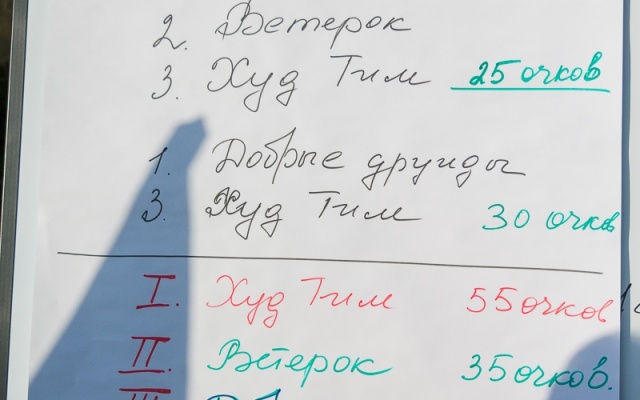 2. Ветерок
3. Худ Тим 25 очков
1. Добрые друиды
3. Худ Тим 30 очков
I. Худ Тим 55 очков
II. Ветерок 35 очков.
III